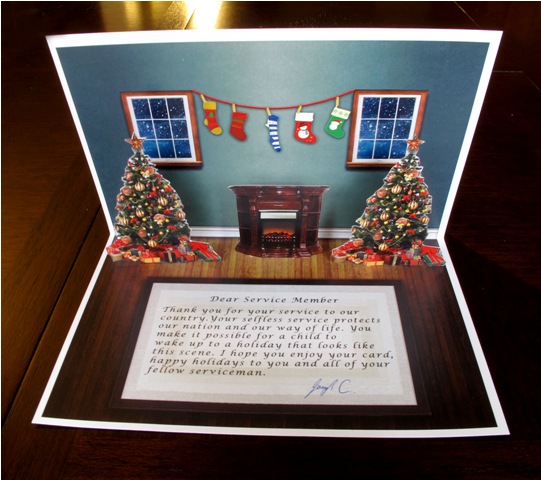 Dear Service Member
Thank you for your service to our
country.Your selfless service protects
our nation and our way of life. You
make it possible for a child to
wake up to a holiday that looks like
this scene. I hope you enjoy your card,
happy holidays to you and all of your
fellow serviceman.